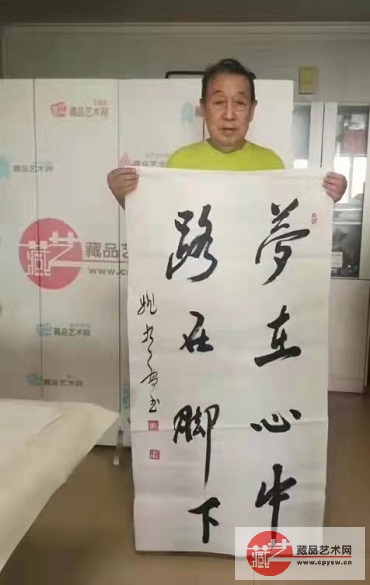 夢在心中
路在脚下
藏品艺术网
藏品艺术网
藏艺
藏品艺术网
www.cp
藏品艺术网
藏艺
藏品艺术网
www.cpysw.cn